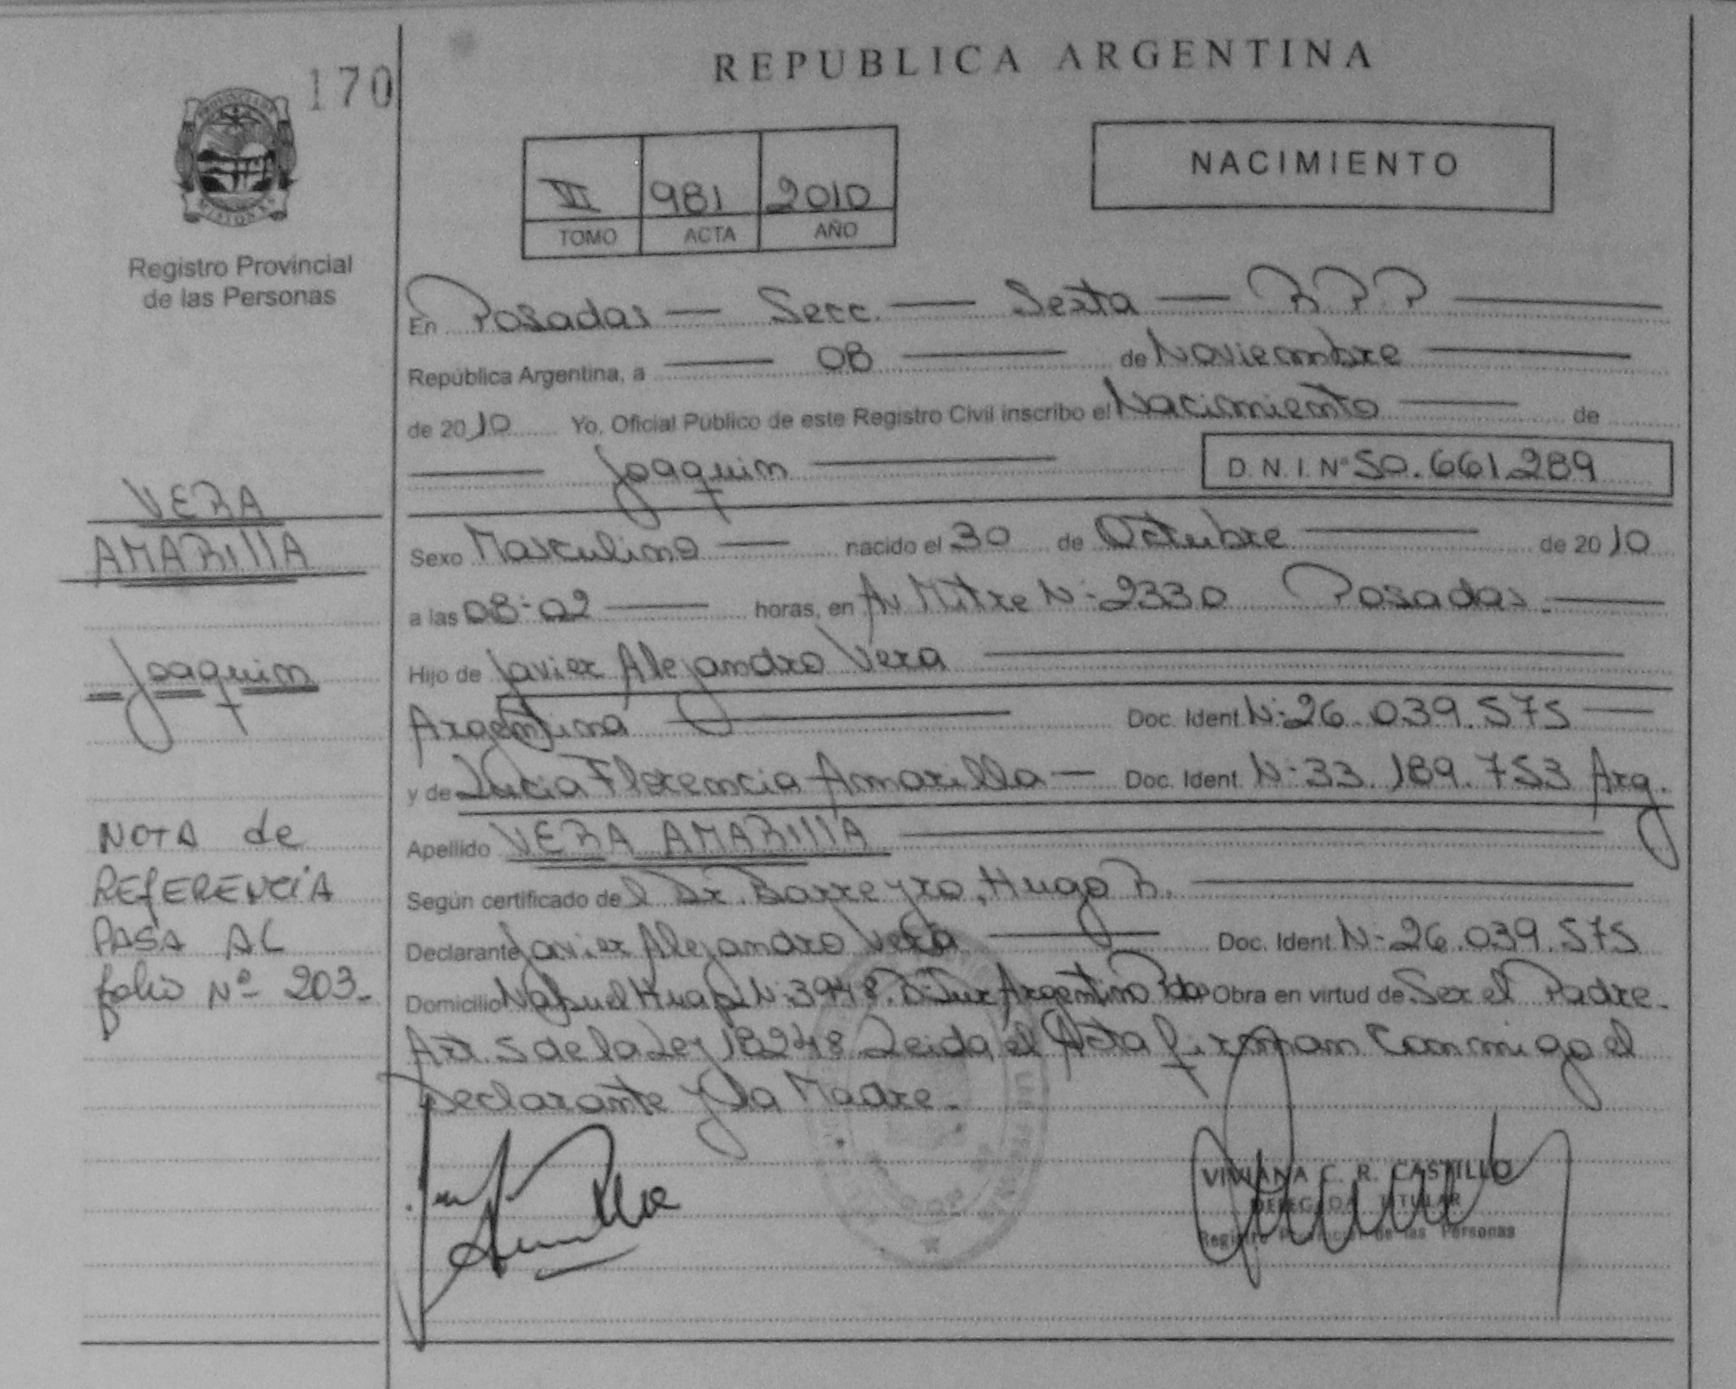 170
REPUBLICA ARGENTINA
PROVINCIA DE
MISIONES
Registro Provincial
de las Personas
VI 981 2010
TOMO ACTA AÑO
NACIMIENTO
En Posadas — Secc. — Sexta — R.P.P —
República Argentina, a — 08 — de Noviembre —
de 2010 Yo, Oficial Público de este Registro Civil inscribo el Nacimiento — de
— Joaquin — D.N.I. Nº 50.661.289
Sexo Masculino — nacido el 30 de Octubre — de 2010
a las 08-02 — horas, en Av Mitre N-2330 Posadas. —
Hijo de Javier Alejandro Vera —
Argentina — Doc. Ident. N-26.039.575 —
y de Lucia Florencia Amarilla — Doc. Ident. N-33.189.753 Arg.
Apellido VERA AMARILLA —
Según certificado del Dr. Barreyro, Hugo R. —
Declarante Javier Alejandro Vera — Doc. Ident. N-26.039.575
Domicilio Nahuel Huapi N-3948. Argentino Pdas Obra en virtud de Ser el Padre.
Art. 5 de la Ley 18248. Leida el Acta firman Conmigo el
Declarante y la Madre.
VERA
AMARILLA
Joaquin
NOTA de
REFERENCIA
PASA AL
folio Nº 203.
VIVIANA C. R. CASTILLO
DELEGADA TITULAR
Registro Provincial de las Personas